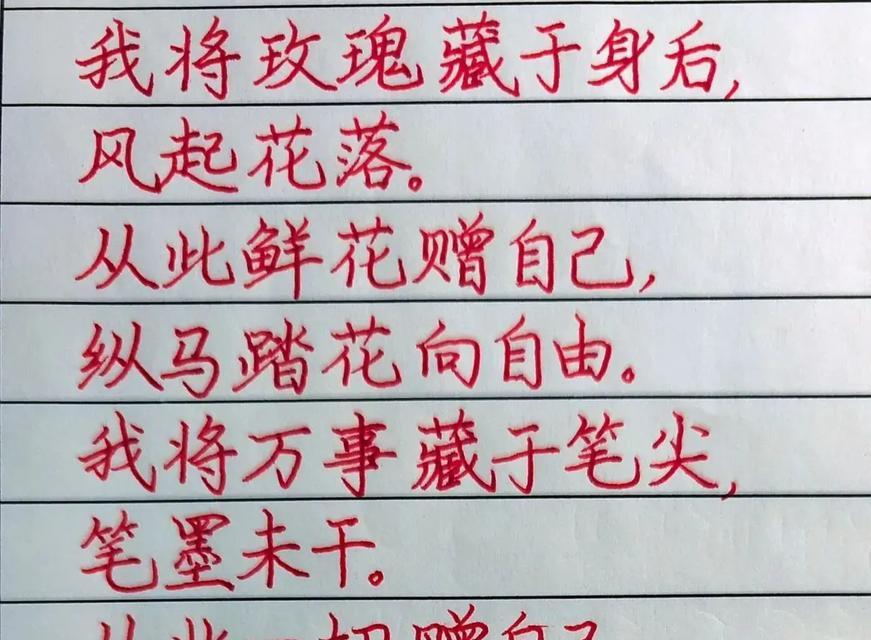 我将玫瑰藏于身后,
风起花落。
从此鲜花赠自己,
纵马踏花向自由。
我将万事藏于笔尖,
笔墨未干。
从此一切赠自己